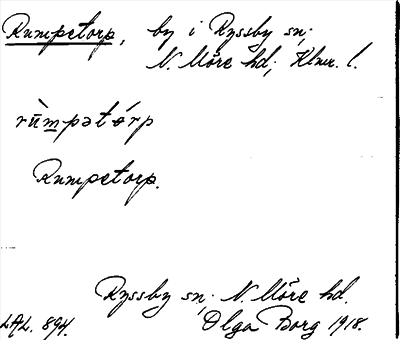 Rumpetorp, by i Ryssby sn;
N. Möre hd; Klmr. l.
rùmpətórp
Rumpetorp.
Ryssby sn; N. Möre hd.
LAL. 894. Olga Borg 1918.